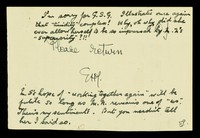 I'm sorry for F.D.G. Illustrates once again
that "timidity complex"! Why, oh why did he
ever allow himself to be so impressed by N.'s
"superiority"!!
Please return
EHJ.
in so hope of "working together again" will be
futile so long as N. remains one of "us".
There's my sentiments. But you needn't tell
her I said so.